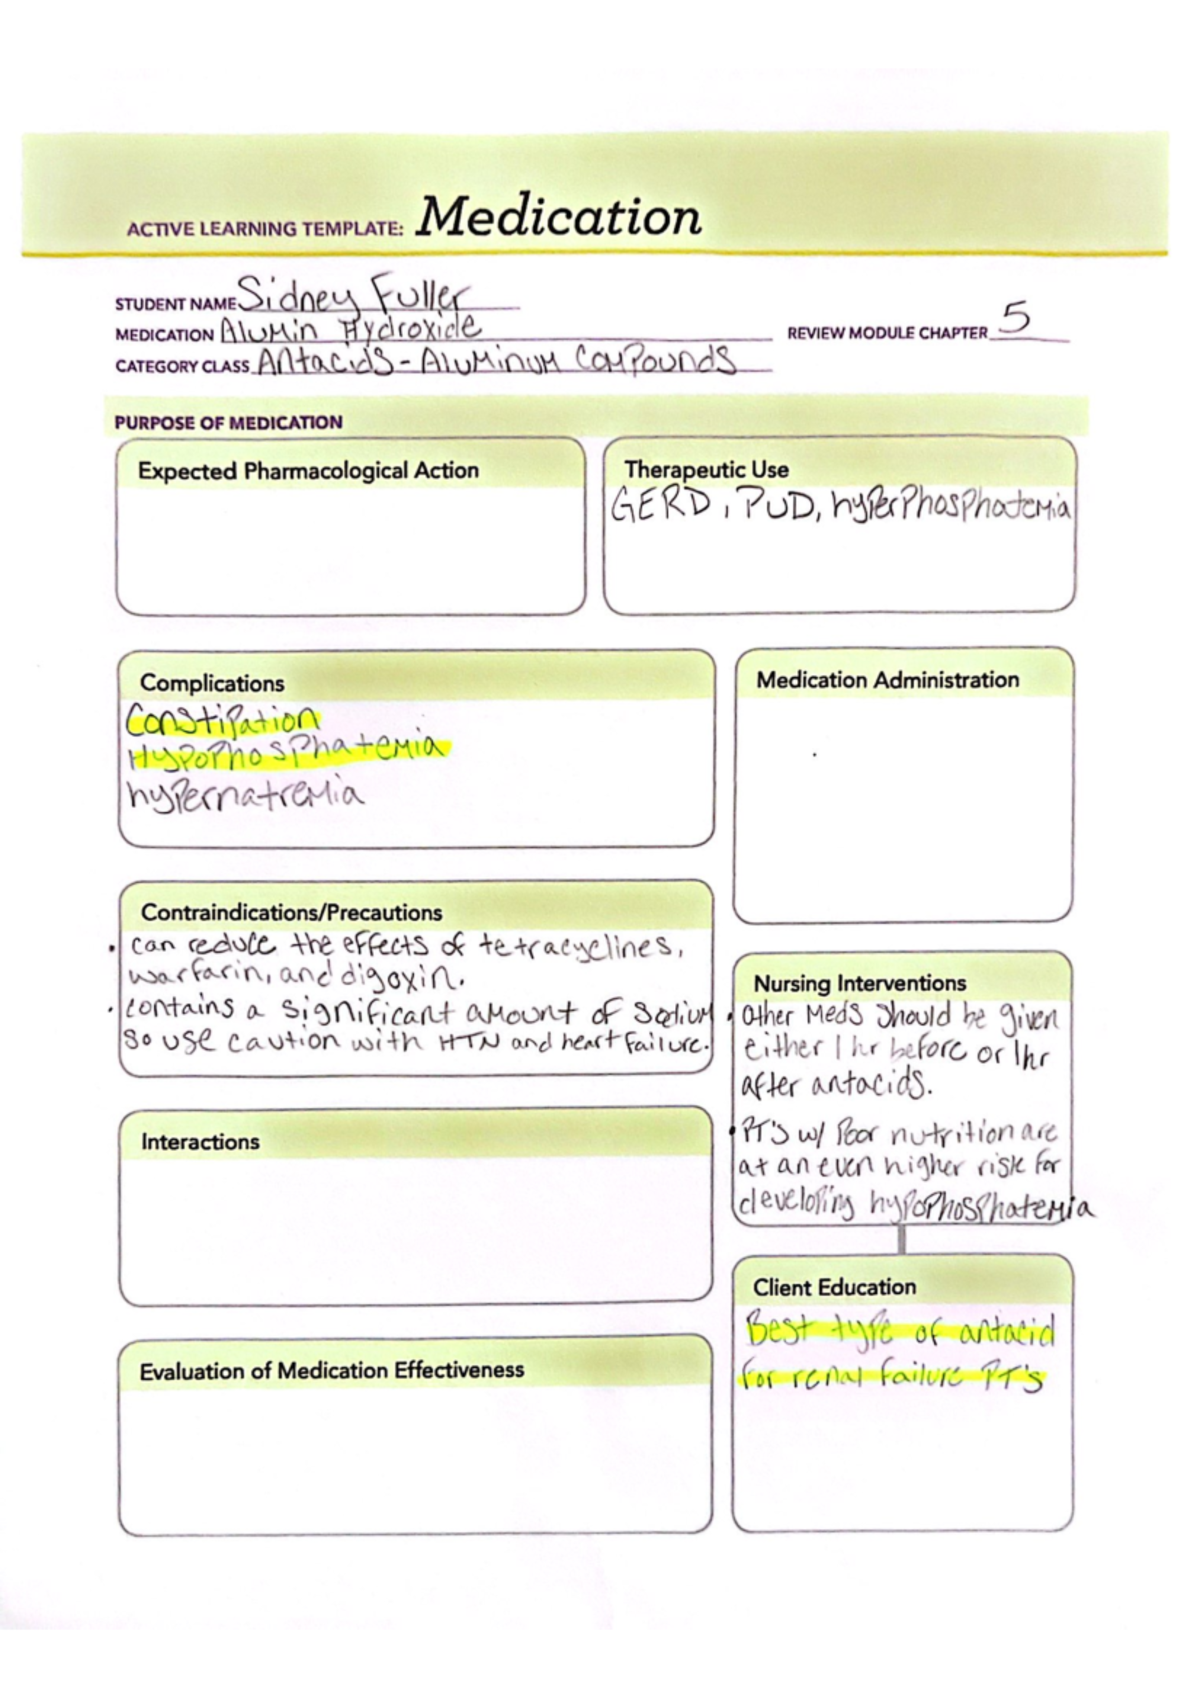 ACTIVE LEARNING TEMPLATE: Medication
STUDENT NAME Sidney Fuller
MEDICATION Alumin Hydroxide
REVIEW MODULE CHAPTER 5
CATEGORY CLASS Antacids - Aluminum Compounds
PURPOSE OF MEDICATION
Expected Pharmacological Action
Therapeutic Use
GERD, PUD, hyperphosphatemia
Complications
Constipation
Hypophosphatemia
hypernatremia
Medication Administration
Contraindications/Precautions
• can reduce the effects of tetracyclines,
warfarin, and digoxin.
• contains a significant amount of sodium
so use caution with HTN and heart failure.
Nursing Interventions
• Other meds should be given
either 1 hr before or 1hr
after antacids.
• PT's w/ poor nutrition are
at an even higher risk for
developing hypophosphatemia
Interactions
Client Education
Best type of antacid
for renal failure PT's
Evaluation of Medication Effectiveness